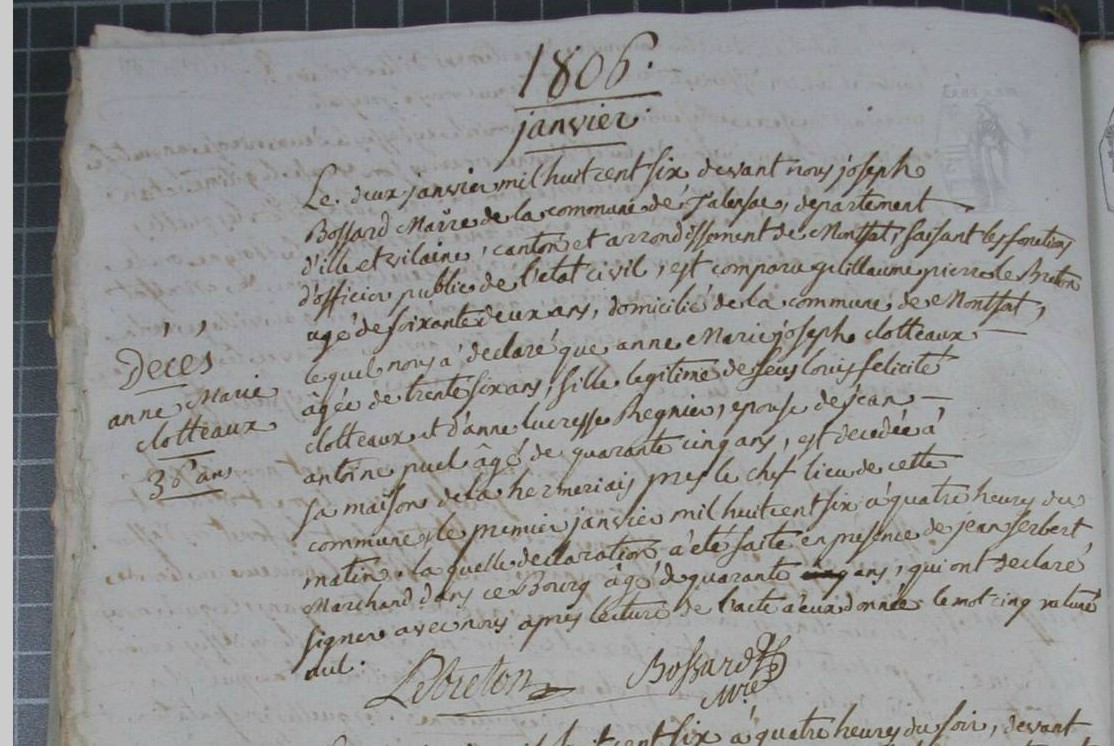 1806.
janvier
Le deux janvier mil huit cent six devant nous joseph
Bossard Maire de la commune de Talensac, departement
d'ille et vilaine, canton et arrondissement de Montfat, faisant les fonctions
d'officier public de l'etat civil, est comparu guillaume pierre le Breton
agé de soixante deux ans, domicilié de la commune de Montfat,
lequel nous a declaré que anne Marie joseph clotteaux
âgée de trente six ans, fille legitime de feus louis felicité
clotteaux et d'anne lucresse Regnier, epouse de jean
antoine puel âgé de quarante cinq ans, est decedée à
sa maison de la hermeriais pres le chef lieu de cette
commune le premier janvier mil huit cent six à quatre heures du
matin. la quelle declaration a été faite en presence de jean
Marchand dans ce Bourg âgé de quarante ans, qui ont declaré
signer avec nous après lecture de l'acte a eux donnée le mot cinq raturé
nul.
Deces
anne Marie
clotteaux
36 ans
Lebreton
Bossard
Mre
six à quatre heures du soir, devant